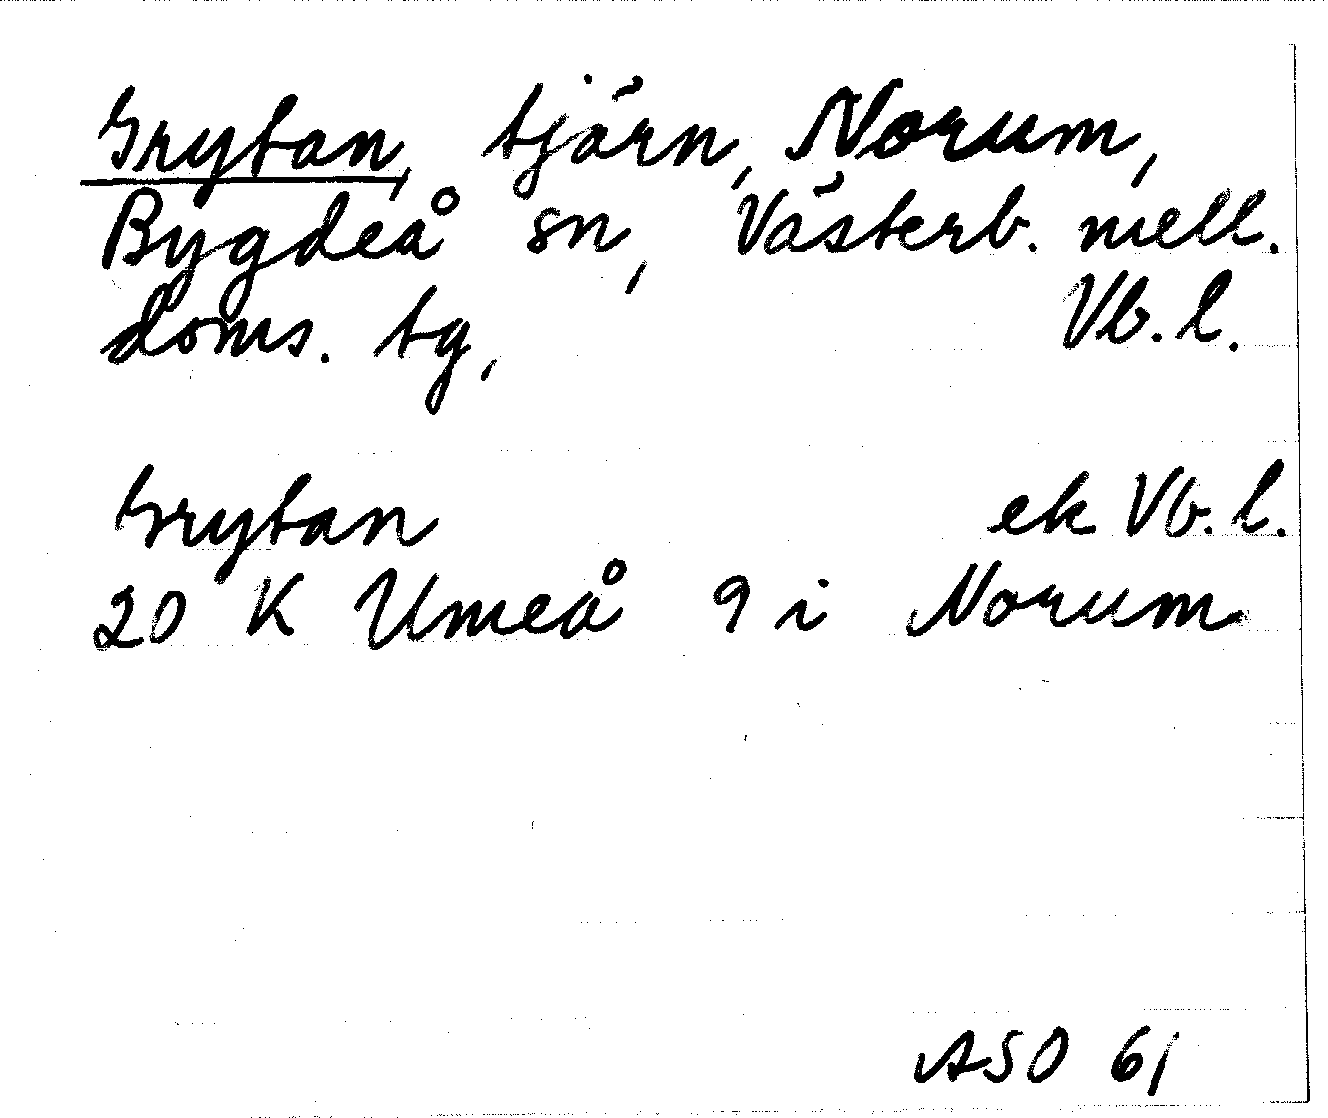 Grytan, tjärn, Norum,
Bygdeå sn, Västerb. mell.
doms. tg, Vb. l.
Grytan ek Vb. l.
20 K Umeå 9 i Norum
ASO 61